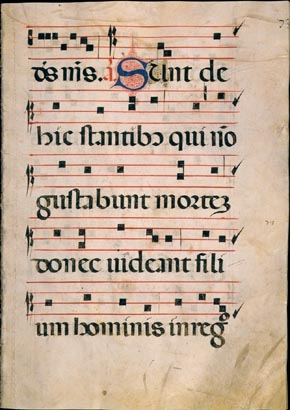 ds nis. a Sunt de
hic stantibꝫ qui nō
gustabunt morteꝫ
donec uideant fili
um hominis in reg̊